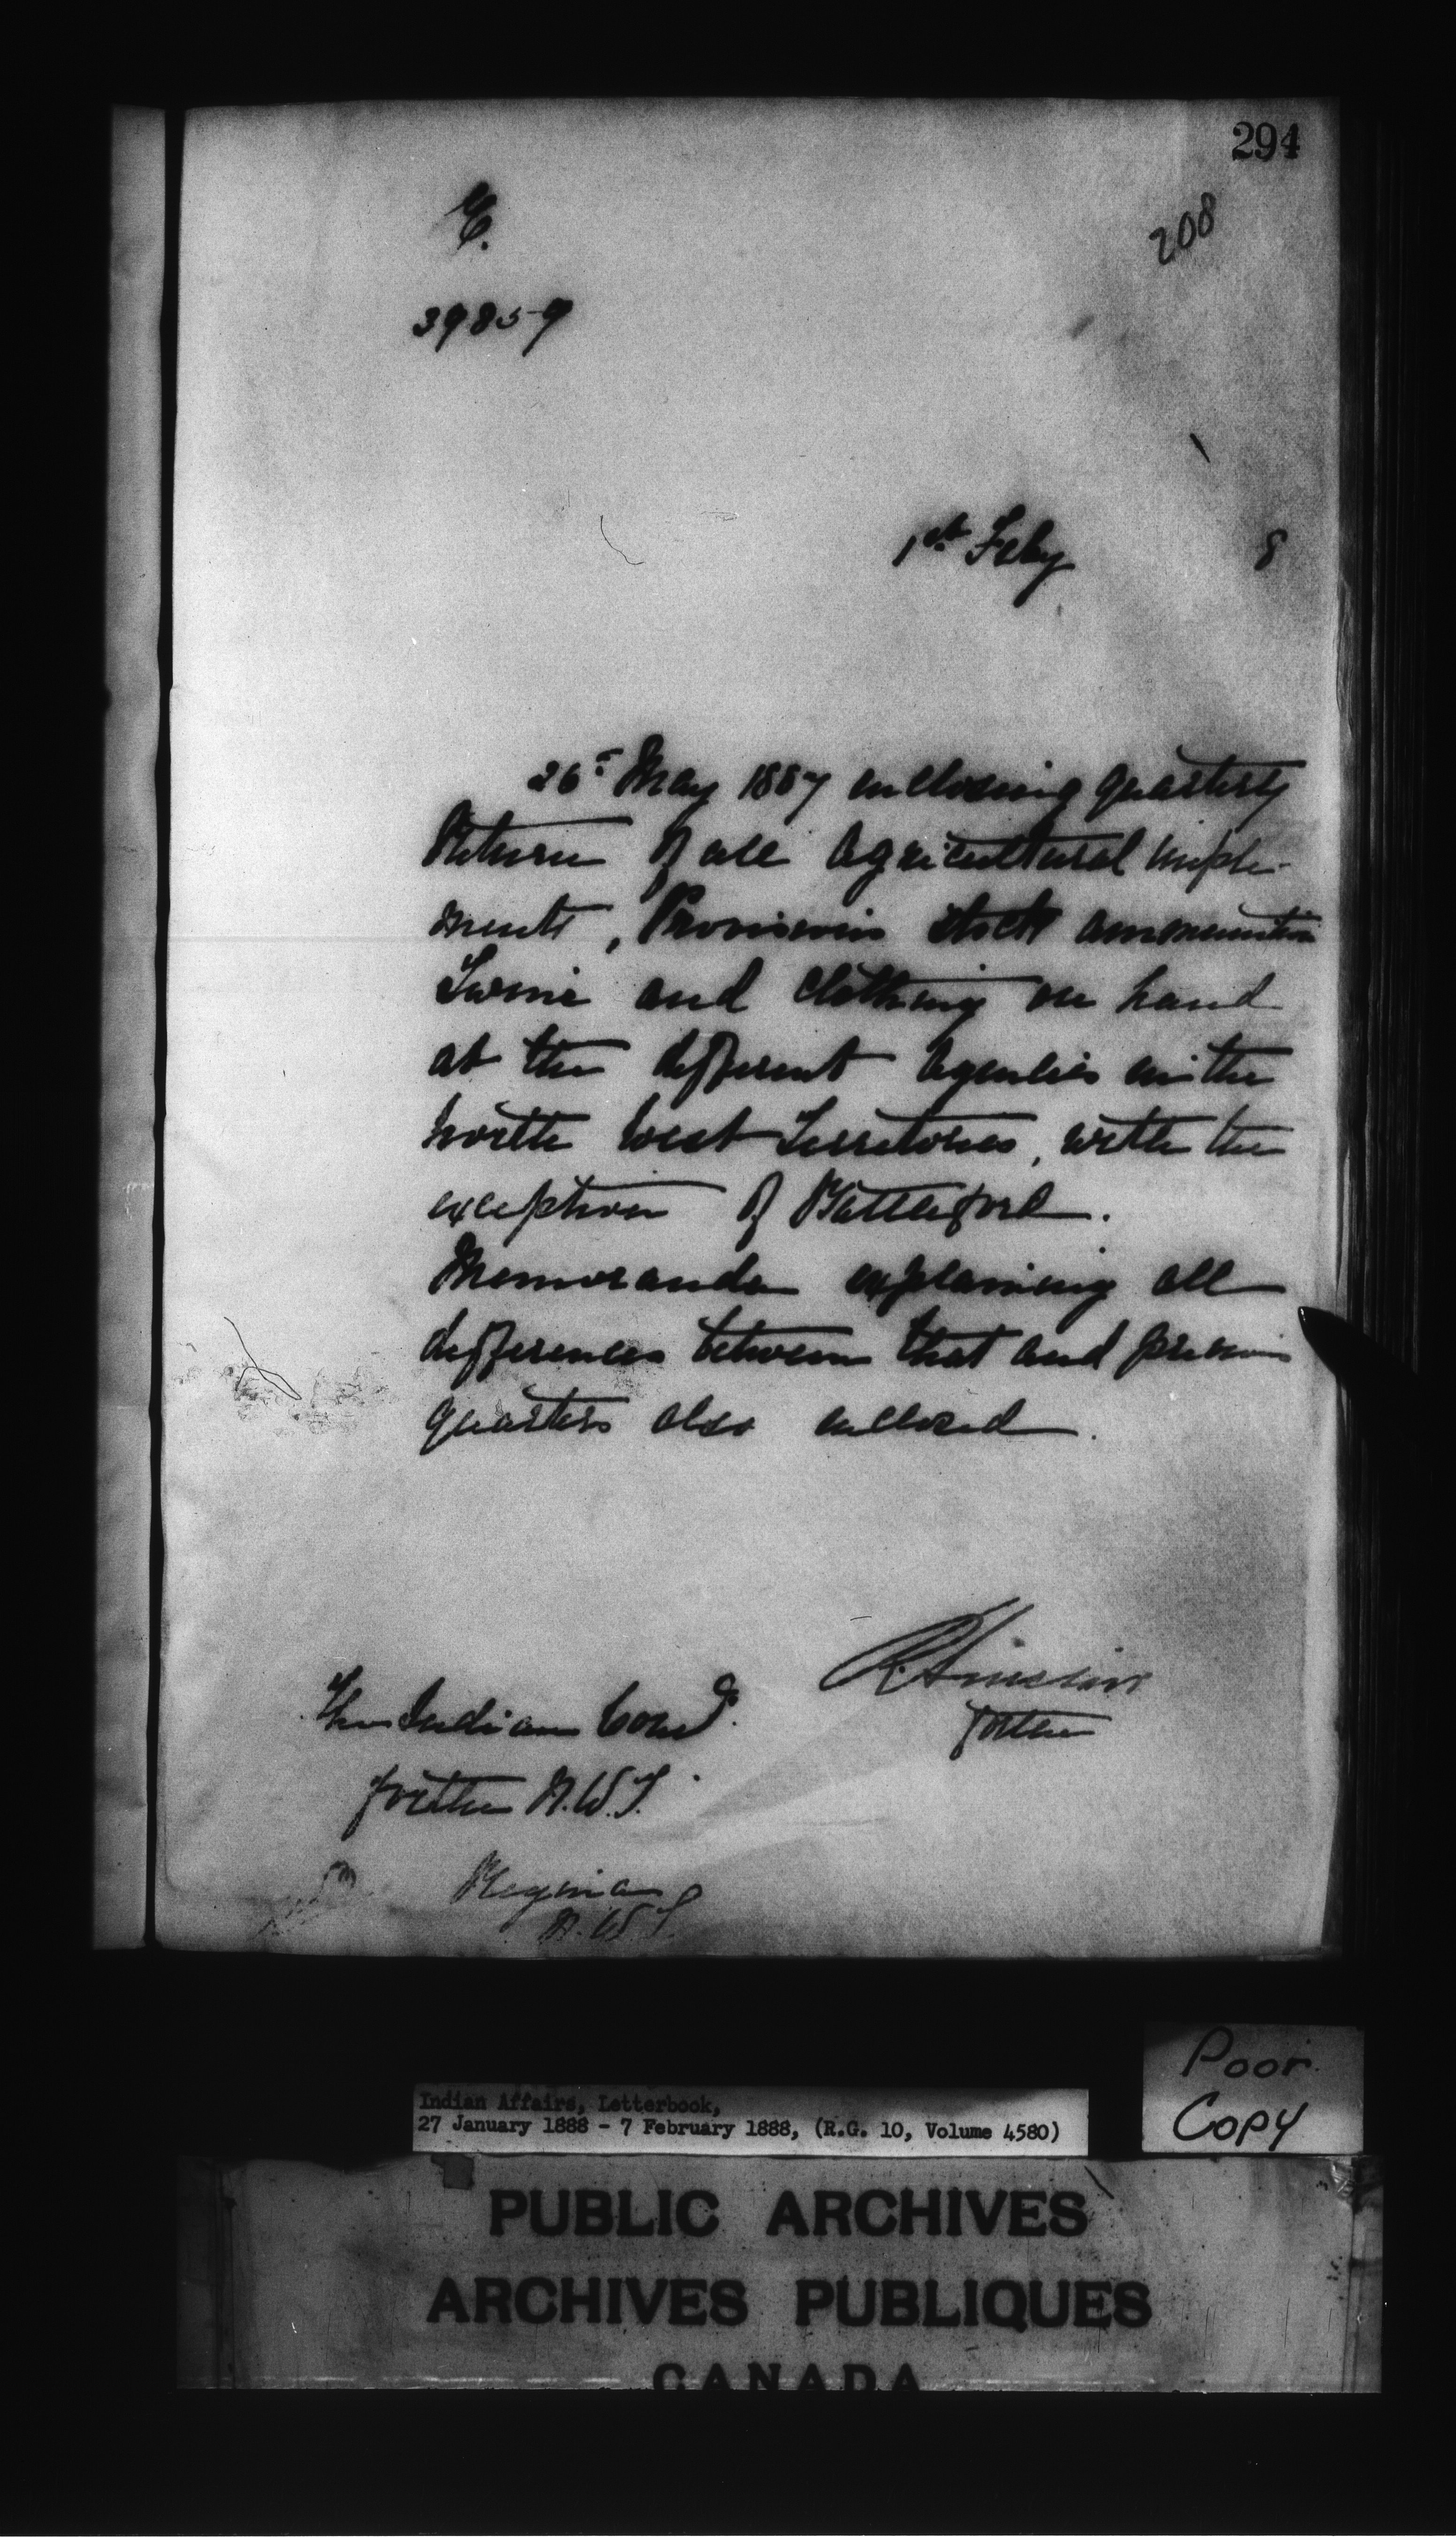 294
208
E.
39859
1st Feby 8
26th May 1887 enclosing quarterly
Return of all Agricultural imple-
ments, Provisions stock ammunition
Twine and Clothing on hand
at the different Agencies in the
North West Territories, with the
exception of Battleford.
Memoranda explaining all
differences between that and previous
quarters also enclosed.
R. Sinclair
for the
The Indian Comr.
for the N.W.T.
Regina
N.W.T.
Poor
Copy
Indian Affairs, Letterbook,
27 January 1888 - 7 February 1888, (R.G. 10, Volume 4580)
PUBLIC ARCHIVES
ARCHIVES PUBLIQUES
CANADA